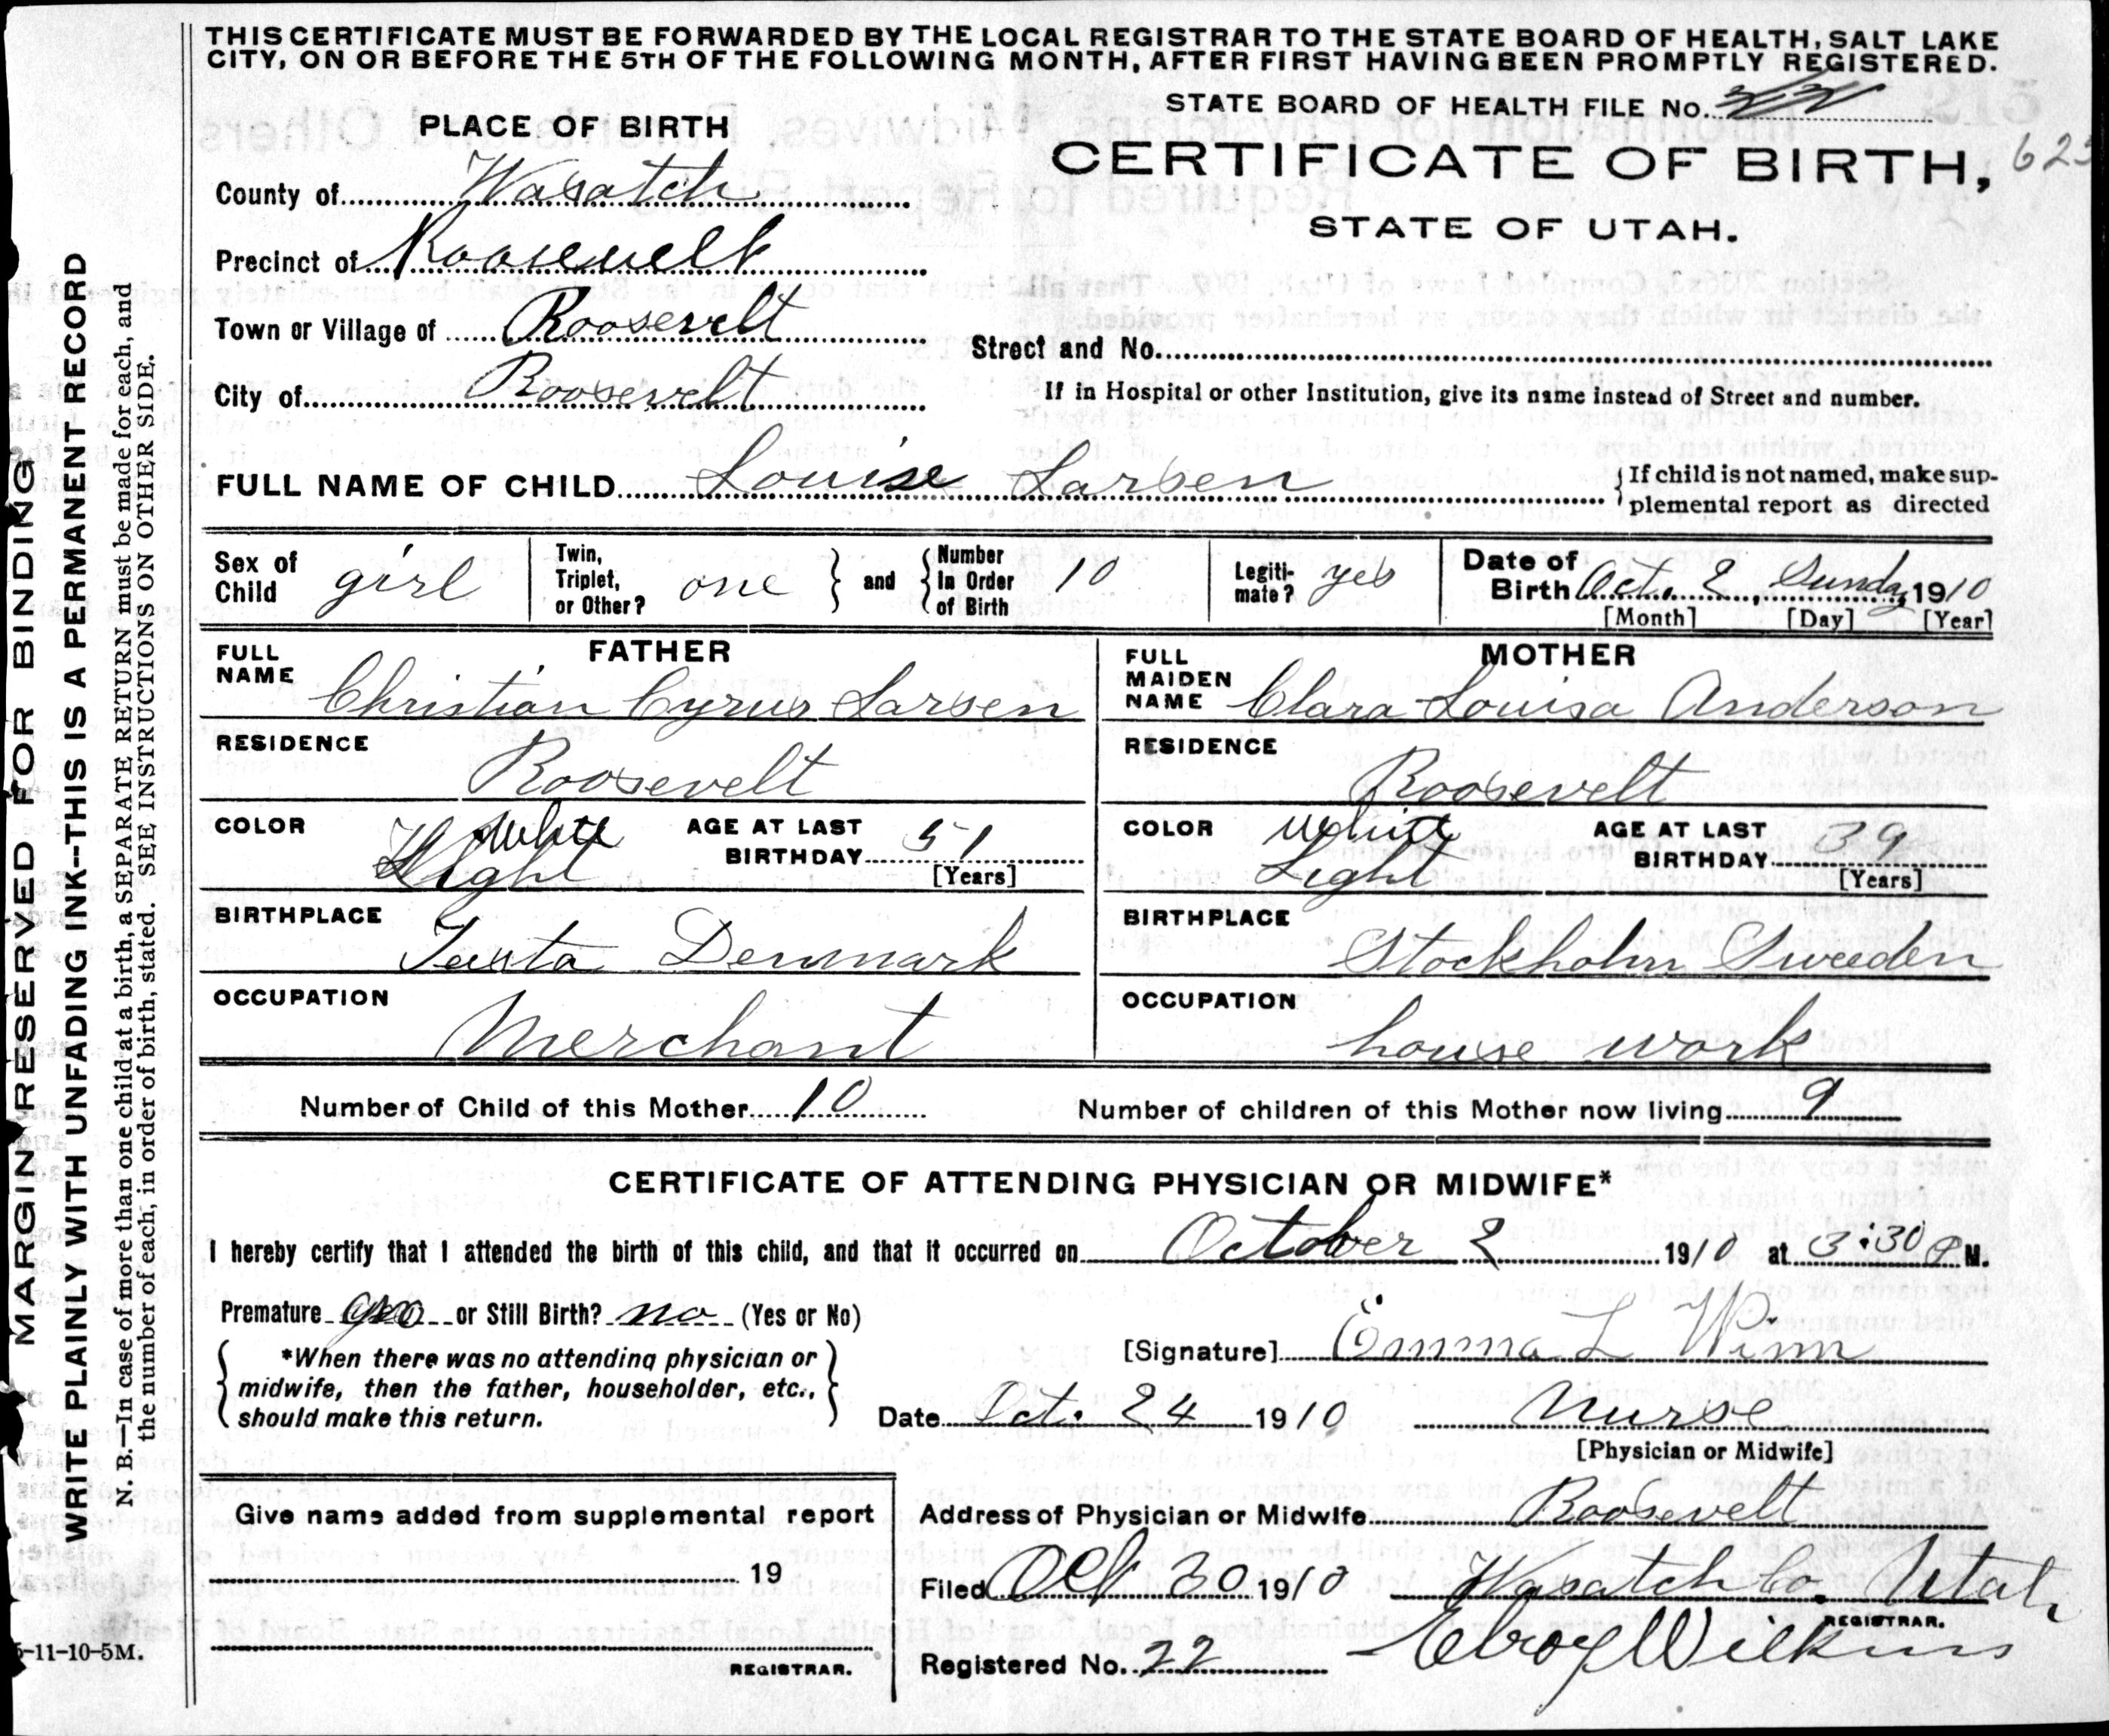 THIS CERTIFICATE MUST BE FORWARDED BY THE LOCAL REGISTRAR TO THE STATE BOARD OF HEALTH, SALT LAKE
CITY, ON OR BEFORE THE 5TH OF THE FOLLOWING MONTH, AFTER FIRST HAVING BEEN PROMPTLY REGISTERED.
STATE BOARD OF HEALTH FILE No.
PLACE OF BIRTH
CERTIFICATE OF BIRTH,
STATE OF UTAH.
County of Wasatch
Precinct of Roosevelt
Town or Village of Roosevelt
Street and No.
City of Roosevelt
If in Hospital or other Institution, give its name instead of Street and number.
FULL NAME OF CHILD Louise Larsen
If child is not named, make sup-
plemental report as directed
Sex of Child girl
Twin, Triplet, or Other? one
and
Number In Order of Birth 10
Legiti-mate? yes
Date of Birth Oct. 2, Sunday, 1910
[Month] [Day] [Year]
FATHER
FULL NAME Christian Cyrus Larsen
RESIDENCE Roosevelt
COLOR White Light
AGE AT LAST BIRTHDAY 51
[Years]
BIRTHPLACE Denmark
OCCUPATION Merchant
MOTHER
FULL MAIDEN NAME Clara Louisa Anderson
RESIDENCE Roosevelt
COLOR White Light
AGE AT LAST BIRTHDAY 39
[Years]
BIRTHPLACE Stockholm Sweeden
OCCUPATION house work
Number of Child of this Mother 10
Number of children of this Mother now living 9
CERTIFICATE OF ATTENDING PHYSICIAN OR MIDWIFE*
I hereby certify that I attended the birth of this child, and that it occurred on October 2 1910 at 3:30 P M.
Premature or Still Birth? no (Yes or No)
*When there was no attending physician or
midwife, then the father, householder, etc.,
should make this return.
[Signature] Emma L Winn
Date Oct. 24 1910 Nurse
[Physician or Midwife]
Give name added from supplemental report
19
REGISTRAR.
Address of Physician or Midwife Roosevelt
Filed Oct 30 1910 Wasatch Co. Utah
REGISTRAR.
Registered No. 22 Elroy Wilkins
MARGIN RESERVED FOR BINDING
WRITE PLAINLY WITH UNFADING INK--THIS IS A PERMANENT RECORD
N. B.—In case of more than one child at a birth, a SEPARATE RETURN must be made for each, and
the number of each, in order of birth, stated. SEE INSTRUCTIONS ON OTHER SIDE.
-11-10-5M.